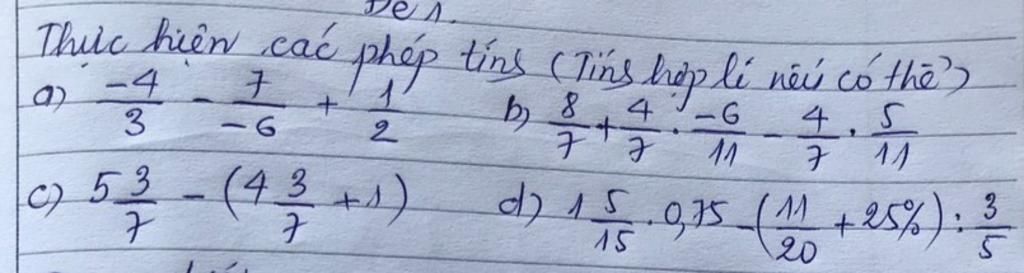 Đề 1.
Thực hiện các phép tính (Tính hợp lí nếu có thể)
a) \frac{-4}{3} - \frac{7}{-6} + \frac{1}{2} b) \frac{8}{7} + \frac{4}{7} . \frac{-6}{11} - \frac{4}{7} . \frac{5}{11}
c) 5\frac{3}{7} - (4\frac{3}{7} + 1) d) 1\frac{5}{15} . 0,75 - (\frac{11}{20} + 25%) : \frac{3}{5}